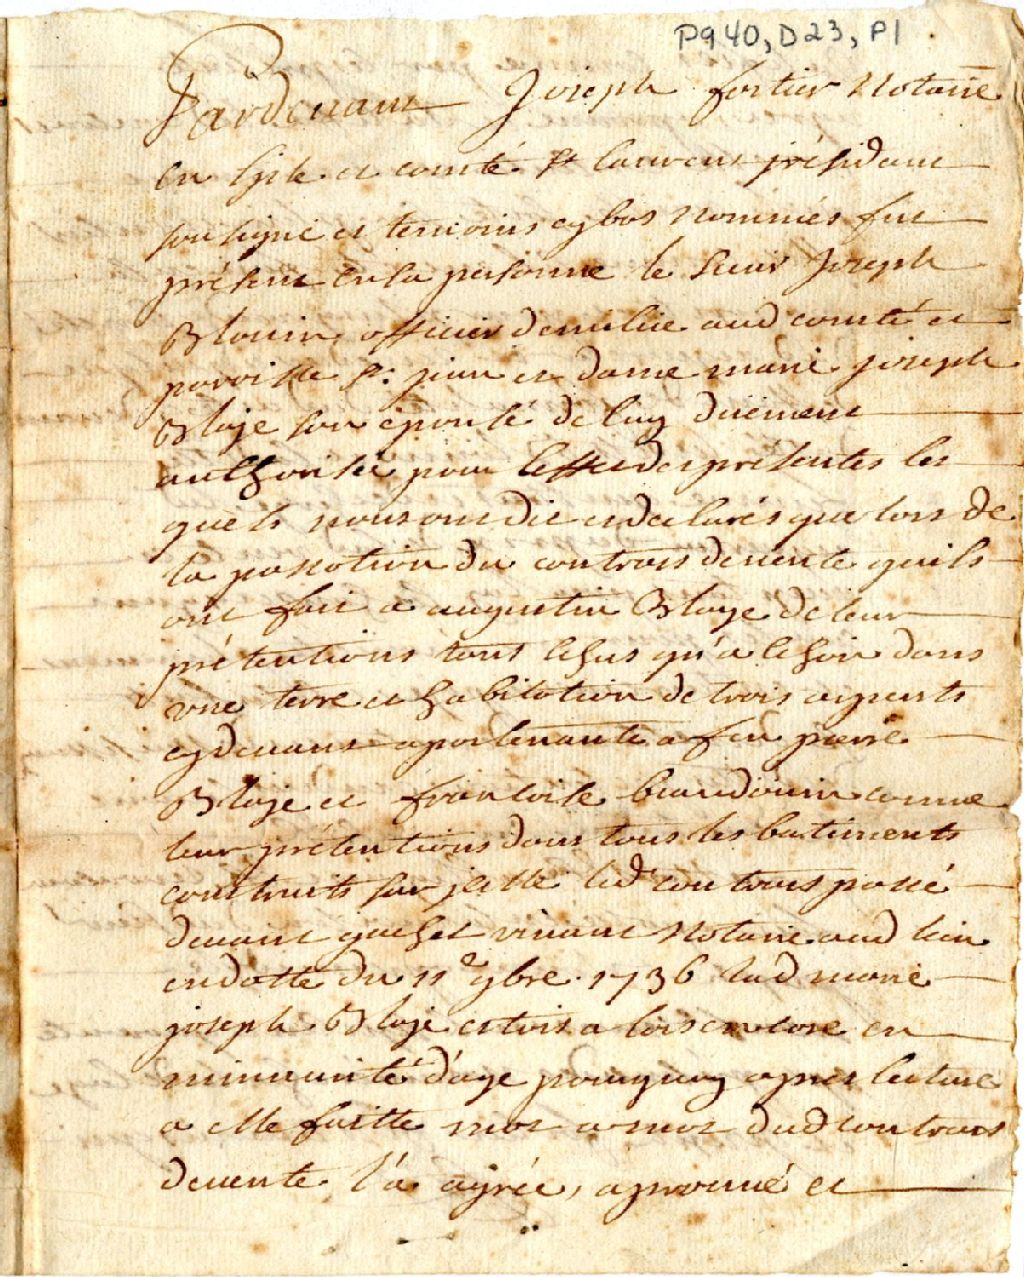 P940, D23, P1
Pardevant Joseph fortier Notaire
En lisle et comté St laurens y résidant
sousigné et temoins cybas nommés fut
présent en sa personne le Sieur Joseph
Blouin officier de milice aud comté et
paroisse St. jean et dame marie joseph
Blaje son épouse de luy duement
authorisée pour leffet des présentes les
quels nous ont dit et declarés que lors de
la passation du contrat de vente quils
ont fait a augustin Blaye de leur
prétentions tout le sus qu'a le soin dans
vne terre et habitation de trois arpents
cydevant apartenante a feu pierre
Blaje et francoise beaudouin comme
leur prétentions dans tous les batiments
construits sur jcelle led contrat passé
devant vivant Notaire aud lieu
en datte du 11e 9bre 1736 lad marie
joseph Blaje estoit alors encore en
minurité d'age pourquoy apres lecture
a elle faitte mot a mot dud contrat
de vente l'a agréé, aprouvé et